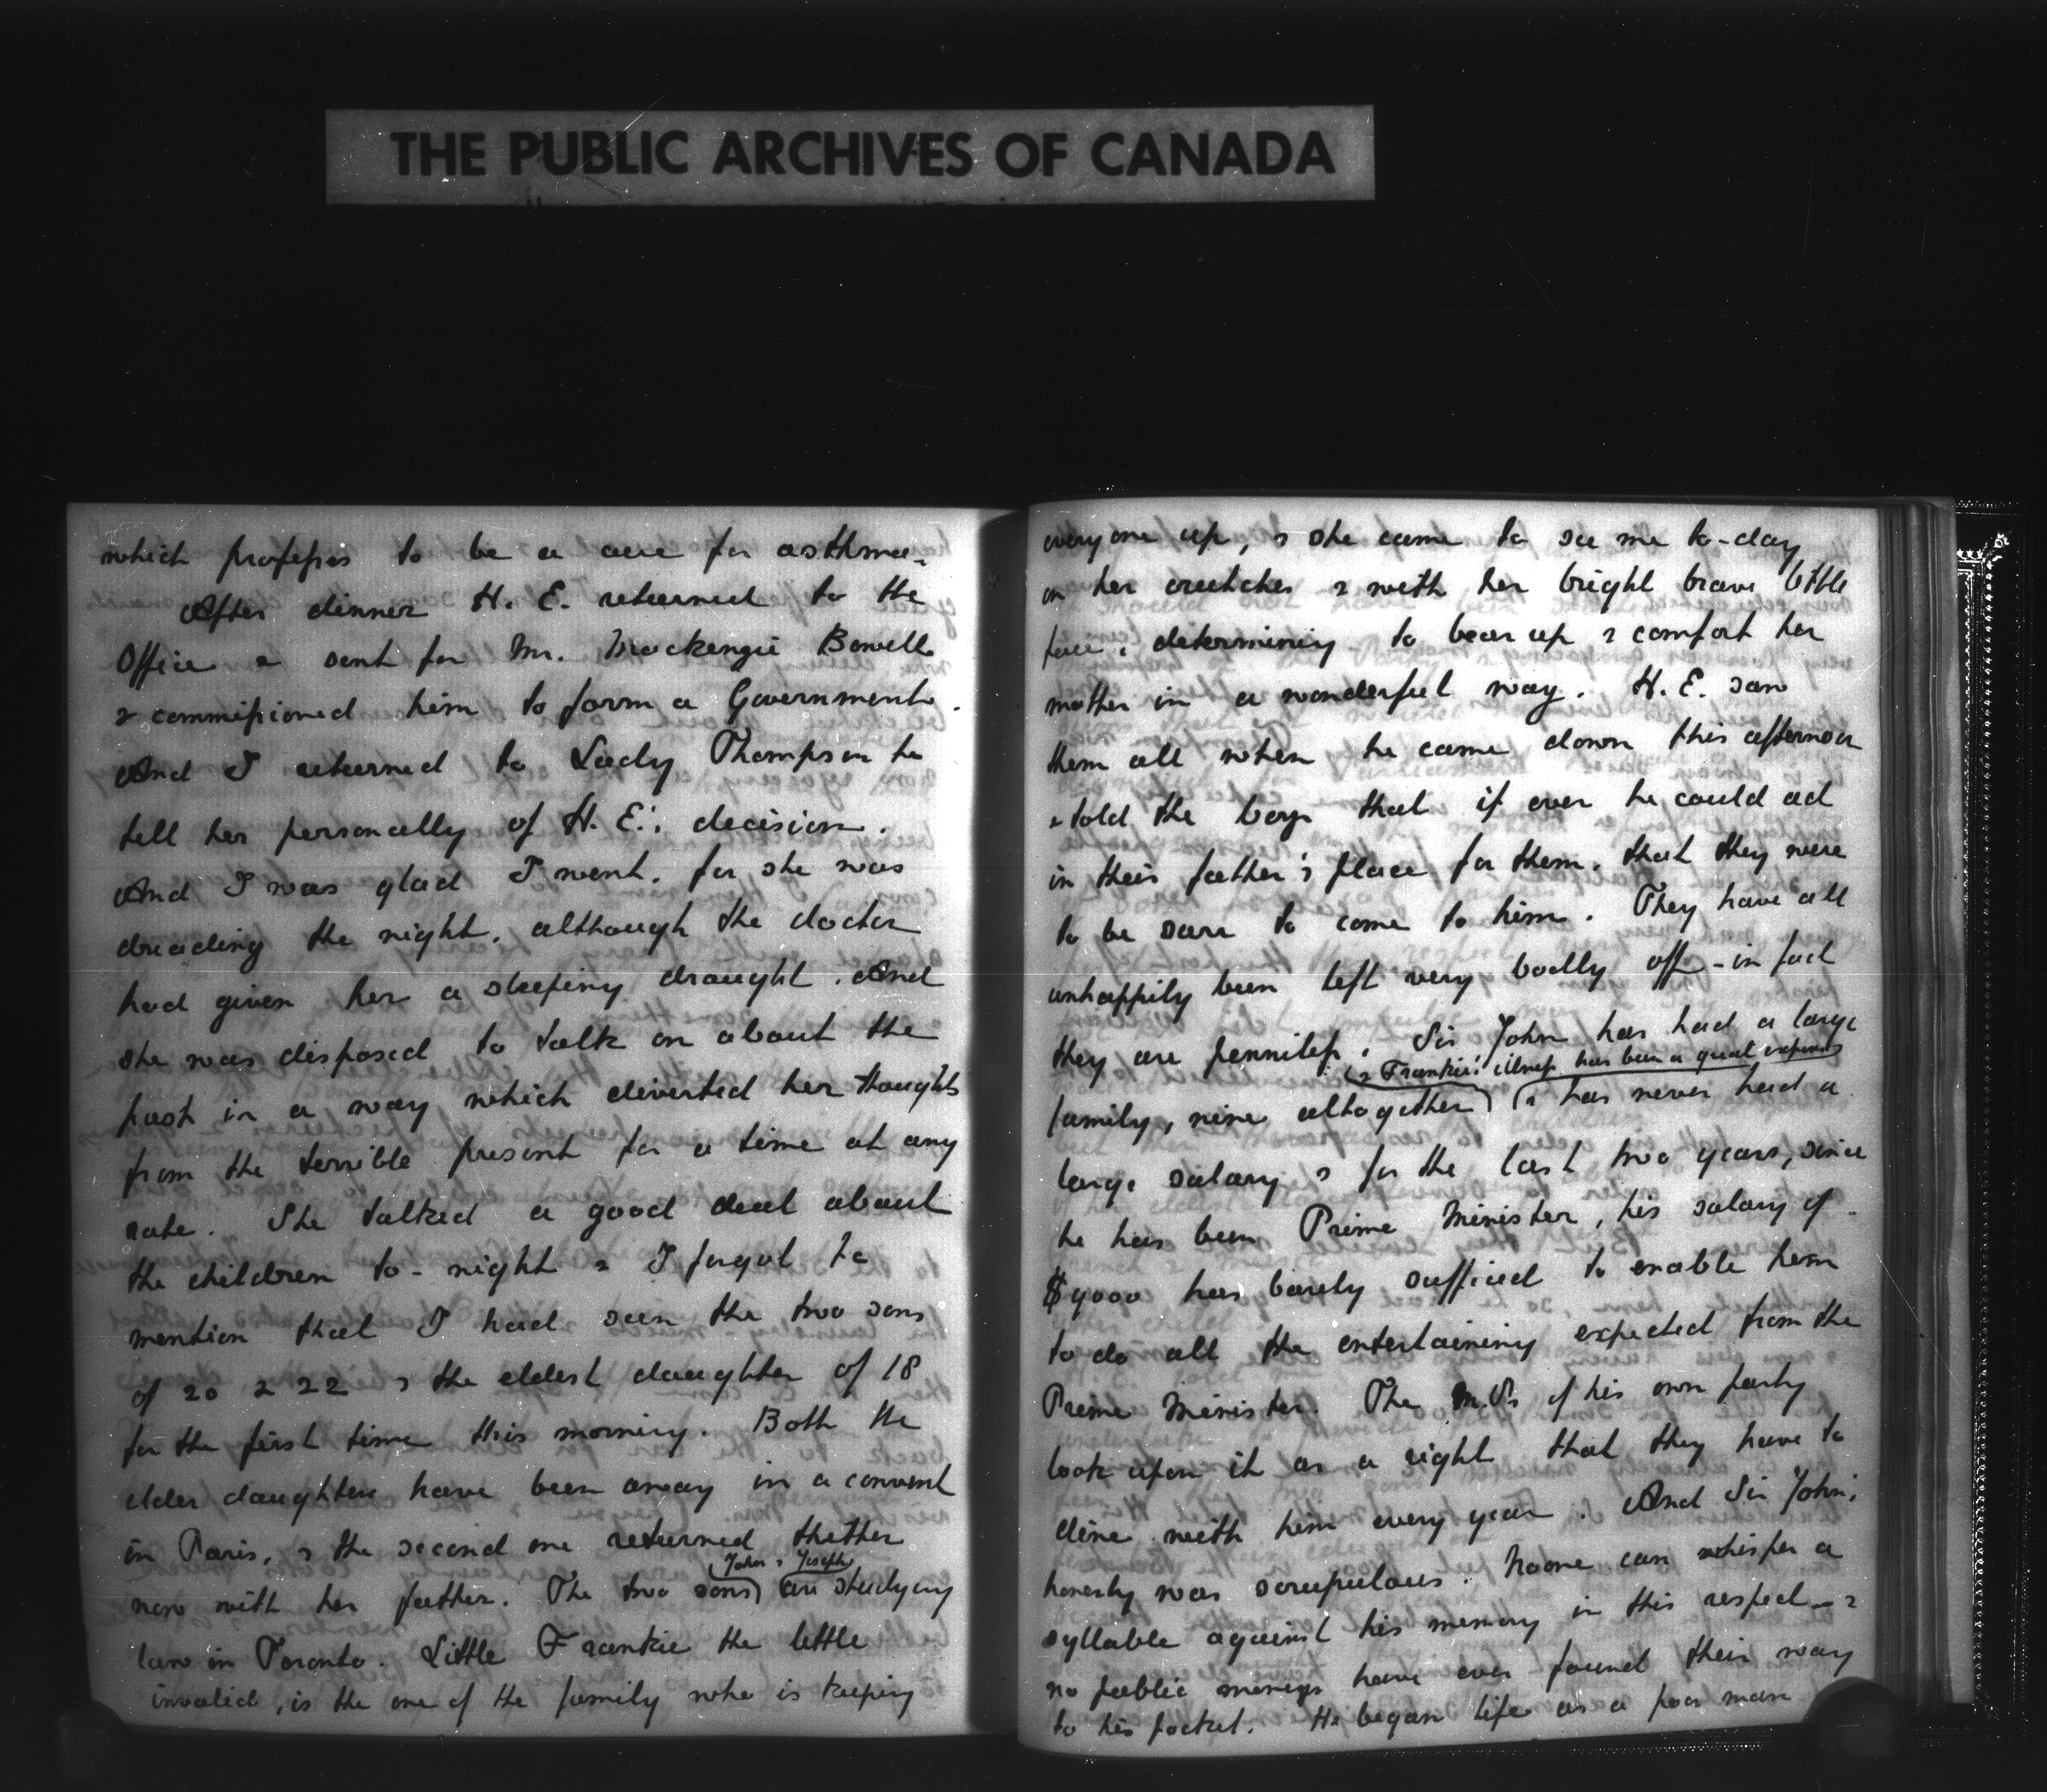 THE PUBLIC ARCHIVES OF CANADA
which professes to be a cure for asthma.
After dinner H. E. returned to the
Office & sent for Mr. Mackenzie Bowell
& commissioned him to form a Government.
And I returned to Lady Thompson to
tell her personally of H. E.'s decision.
And I was glad I went, for she was
dreading the night, although the doctor
had given her a sleeping draught. And
she was disposed to talk on about the
past in a way which diverted her thoughts
from the terrible present for a time at any
rate. She talked a good deal about
the children to-night & I forgot to
mention that I had seen the two sons
of 20 & 22 & the eldest daughter of 18
for the first time this morning. Both the
elder daughters have been away in a convent
in Paris, & the second one returned thither
John & Joseph
now with her father. The two sons are studying
law in Toronto. Little Frankie the little
invalid, is the one of the family who is keeping
everyone up, & she came to see me to-day
on her crutches & with her bright brave little
face, determining to bear up & comfort her
mother in a wonderful way. H. E. saw
them all when he came down this afternoon
& told the boys that if ever he could act
in their father's place for them, that they were
to be sure to come to him. They have all
unhappily been left very badly off - in fact
they are penniless. Sir John has had a large
& Frankie's illness has been a great expense
family, nine altogether & has never had a
large salary & for the last two years, since
he has been Prime Minister, his salary of
$9000 has barely sufficed to enable him
to do all the entertaining expected from the
Prime Minister. The M.P.s of his own party
look upon it as a right that they have to
dine with him every year. And Sir John's
honesty was scrupulous. No one can whisper a
syllable against his memory in this respect - &
no public moneys have ever found their way
to his pocket. He began life as a poor man